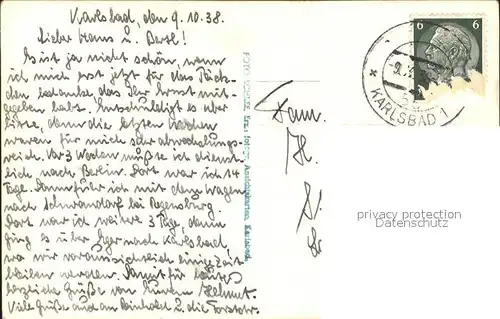 Karlsbad, den 9.10.38.
Lieber Hans u. Bertl!
Es ist ja nicht schön, wenn
ich mich erst jetzt für das Päck-
chen bedanke, das Ihr Ernst mit-
gegeben habt. Entschuldigt es aber
bitte, denn die letzten Wochen
waren für mich sehr abwechslungs-
reich. Vor 3 Wochen mußte ich dienst-
lich nach Berlin. Dort war ich 14
Tage. Dann fuhr ich mit dem Wagen
nach Schwandorf bei Regensburg.
Dort war ich weitere 3 Tage, dann
ging es über Eger nach Karlsbad,
wo wir voraussichtlich einige Zeit
bleiben werden. Damit für heute
herzliche Grüße von Eurem Helmut.
Viele Grüße auch an Reinhold u. die
Fam.
H.
6 6
KARLSBAD 1
privacy protection
Datenschutz